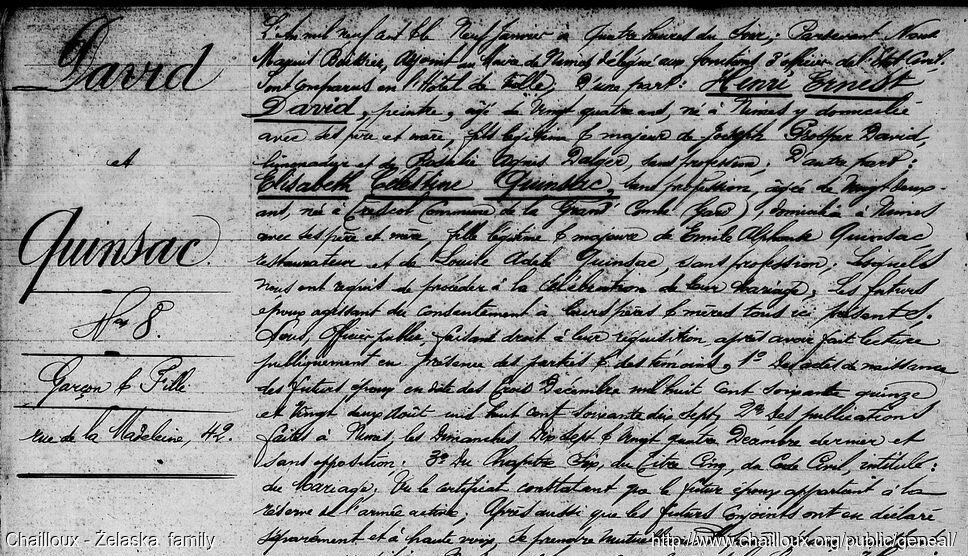 David
et
Quinsac
No 8.
Garçon & Fille
rue de la Madeleine, 42.
L'An mil neuf cent & le Neuf Janvier à quatre heures du soir; Pardevant Nous
adjoint au Maire de Nimes délégué aux fonctions d'officier de l'Etat Civil.
Sont comparus en l'Hôtel de Ville, D'une part: Henri Ernest
David, peintre, âgé de Vingt quatre ans, né à Nimes y domicilié
avec ses père et mère, fils légitime & majeur de Joseph Prosper David,
et de Rosalie Agnès sans profession; D'autre part:
Elisabeth Célestine Quinsac, sans profession, âgée de Vingt deux
ans, née à Trescol Commune de la Grand' Combe (Gard), domiciliée à Nimes
avec ses père et mère, fille légitime & majeure de Emile Alphonse Quinsac,
restaurateur et de Louise Adèle Quinsac, sans profession; Lesquels
Nous ont requis de procéder à la célébration de leur mariage; Les futurs
époux agissant du consentement de leurs pères & mères tous ici présents.
Nous, Officier public, faisant droit à leur réquisition, après avoir fait lecture
publiquement en présence des parties & des témoins, 1° Des actes de naissance
des futurs époux en date des Trois Décembre mil huit cent soixante quinze
et Vingt deux Août mil huit cent soixante dix sept; 2° Des publications
faites à Nimes, les Dimanches Dix sept & Vingt quatre Décembre dernier et
sans opposition; 3° Du Chapitre Six, du Titre Cinq, du Code Civil, intitulé:
du Mariage; Vu le certificat constatant que le futur époux appartient à la
réserve de l'armée active; Après aussi que les futurs conjoints ont eu déclaré
séparément et à haute voix, se prendre
Chailloux - Żelaska family
http://www.chailloux.org/public/geneal/